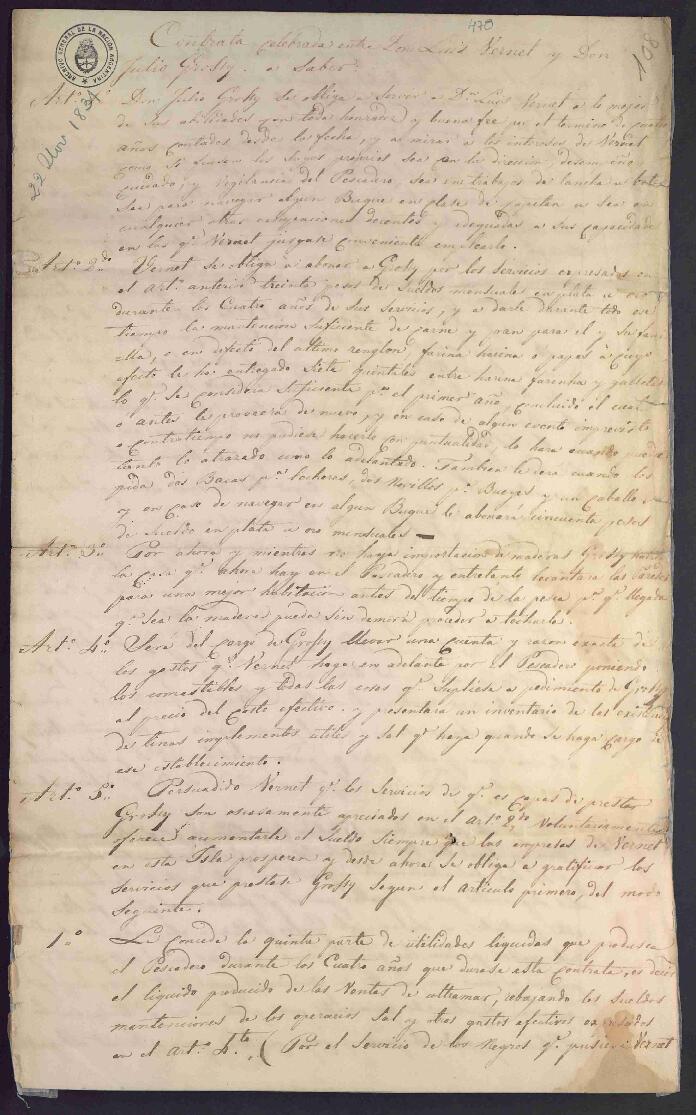 470
108
ARCHIVO GENERAL DE LA NACION ARGENTINA
22 Nov 1831
Contrata celebrada entre Don Luis Vernet y Don
Julio Grossy. a Saber.
Art.º 1.º Don Julio Grossy se obliga a servir a D.n Luis Vernet a lo mejor
de sus abilidades con toda honradez y buena fee por el termino de cuatro
años contados desde la fecha, y a mirar a los intereses de Vernet
como si fuesen los suyos proprios sea en la direccion, desempeño,
cuidado, y vigilancia del Pescadero, sea en trabajos de lancha o bote
sea para navegar algun Buque en clase de Capitan o sea en
cualquier otras ocupaciones decentes y adequadas a sus capacidades
en los q.e Vernet jusgase conveniente emplearlo.
Art.º 2.do Vernet se obliga a abonar a Grossy por los servicios expresados en
el Art.º anterior treinta pesos de Sueldos mensuales en plata u oro
durante los Cuatro años de sus Servicios, y a darle durante todo ese
tiempo la mantencion suficiente de carne y pan para el y su fami-
lia, o en defecto del ultimo renglon, farina harina o papas à cuyo
efecto le ha entregado Siete quintales entre harina farinha y galleta
lo q.e se considera suficiente p.a el primer año, concluido el cual
o antes le proveerá de nuevo, y en caso de algun evento imprevisto
o contratiempo no pudiese hacerlo con puntualidad, lo hará cuando pueda
tanto lo atrazado como lo adelantado. Tambien le dará cuando los
pida dos Bacas p.a lecheras, dos Novillos p.a Bueyes y un Caballo
y en caso de navegar en algun Buque le abonará cincuenta pesos
de Sueldo en plata u oro mensuales
Art.º 3.º Por ahora y mientras no haya importacion de maderas Grossy
la casa q.e ahora hay en el Pescadero y entretanto levantara las paredes
para una mejor habitacion antes del tiempo de la pesca p.a q.e llegada
q.e sea la madera pueda sin demora proceder a techarla.
Art.º 4.º Será del cargo de Grossy llevar una cuenta y razon exacta de
los gastos q.e Vernet haga en adelante por el Pescadero poniendo
los comestibles y todas las cosas q.e supliese a pedimento de Grossy
al precio del costo efectivo. y presentara un inventario de las existencias
de linas implementos utiles y sal q.e haya quando se haga cargo de
ese establecimiento.
Art.º 5.º Persuadido Vernet q.e los Servicios de q.e es capas de prestar
Grossy son escasamente apreciados en el Art.º 2.do Voluntariamente
ofrece aumentarle el Sueldo Siempre que las empresas de Vernet
en esta Isla prosperen y desde ahora se obliga a gratificar los
Servicios que prestase Grossy segun el Articulo primero, del modo
seguiente.
1.º Le concede la quinta parte de utilidades liquidas que produsca
el Pescadero durante los Cuatro años que durase esta Contrata, es decir
el liquido producido de las Ventas de ultramar, rebajando los Sueldos
mantenciones de los operarios Sal y otros gastos efectivos expresados
en el Art.º 4.to (Por el Servicio de los Negros q.e pusiere Vernet